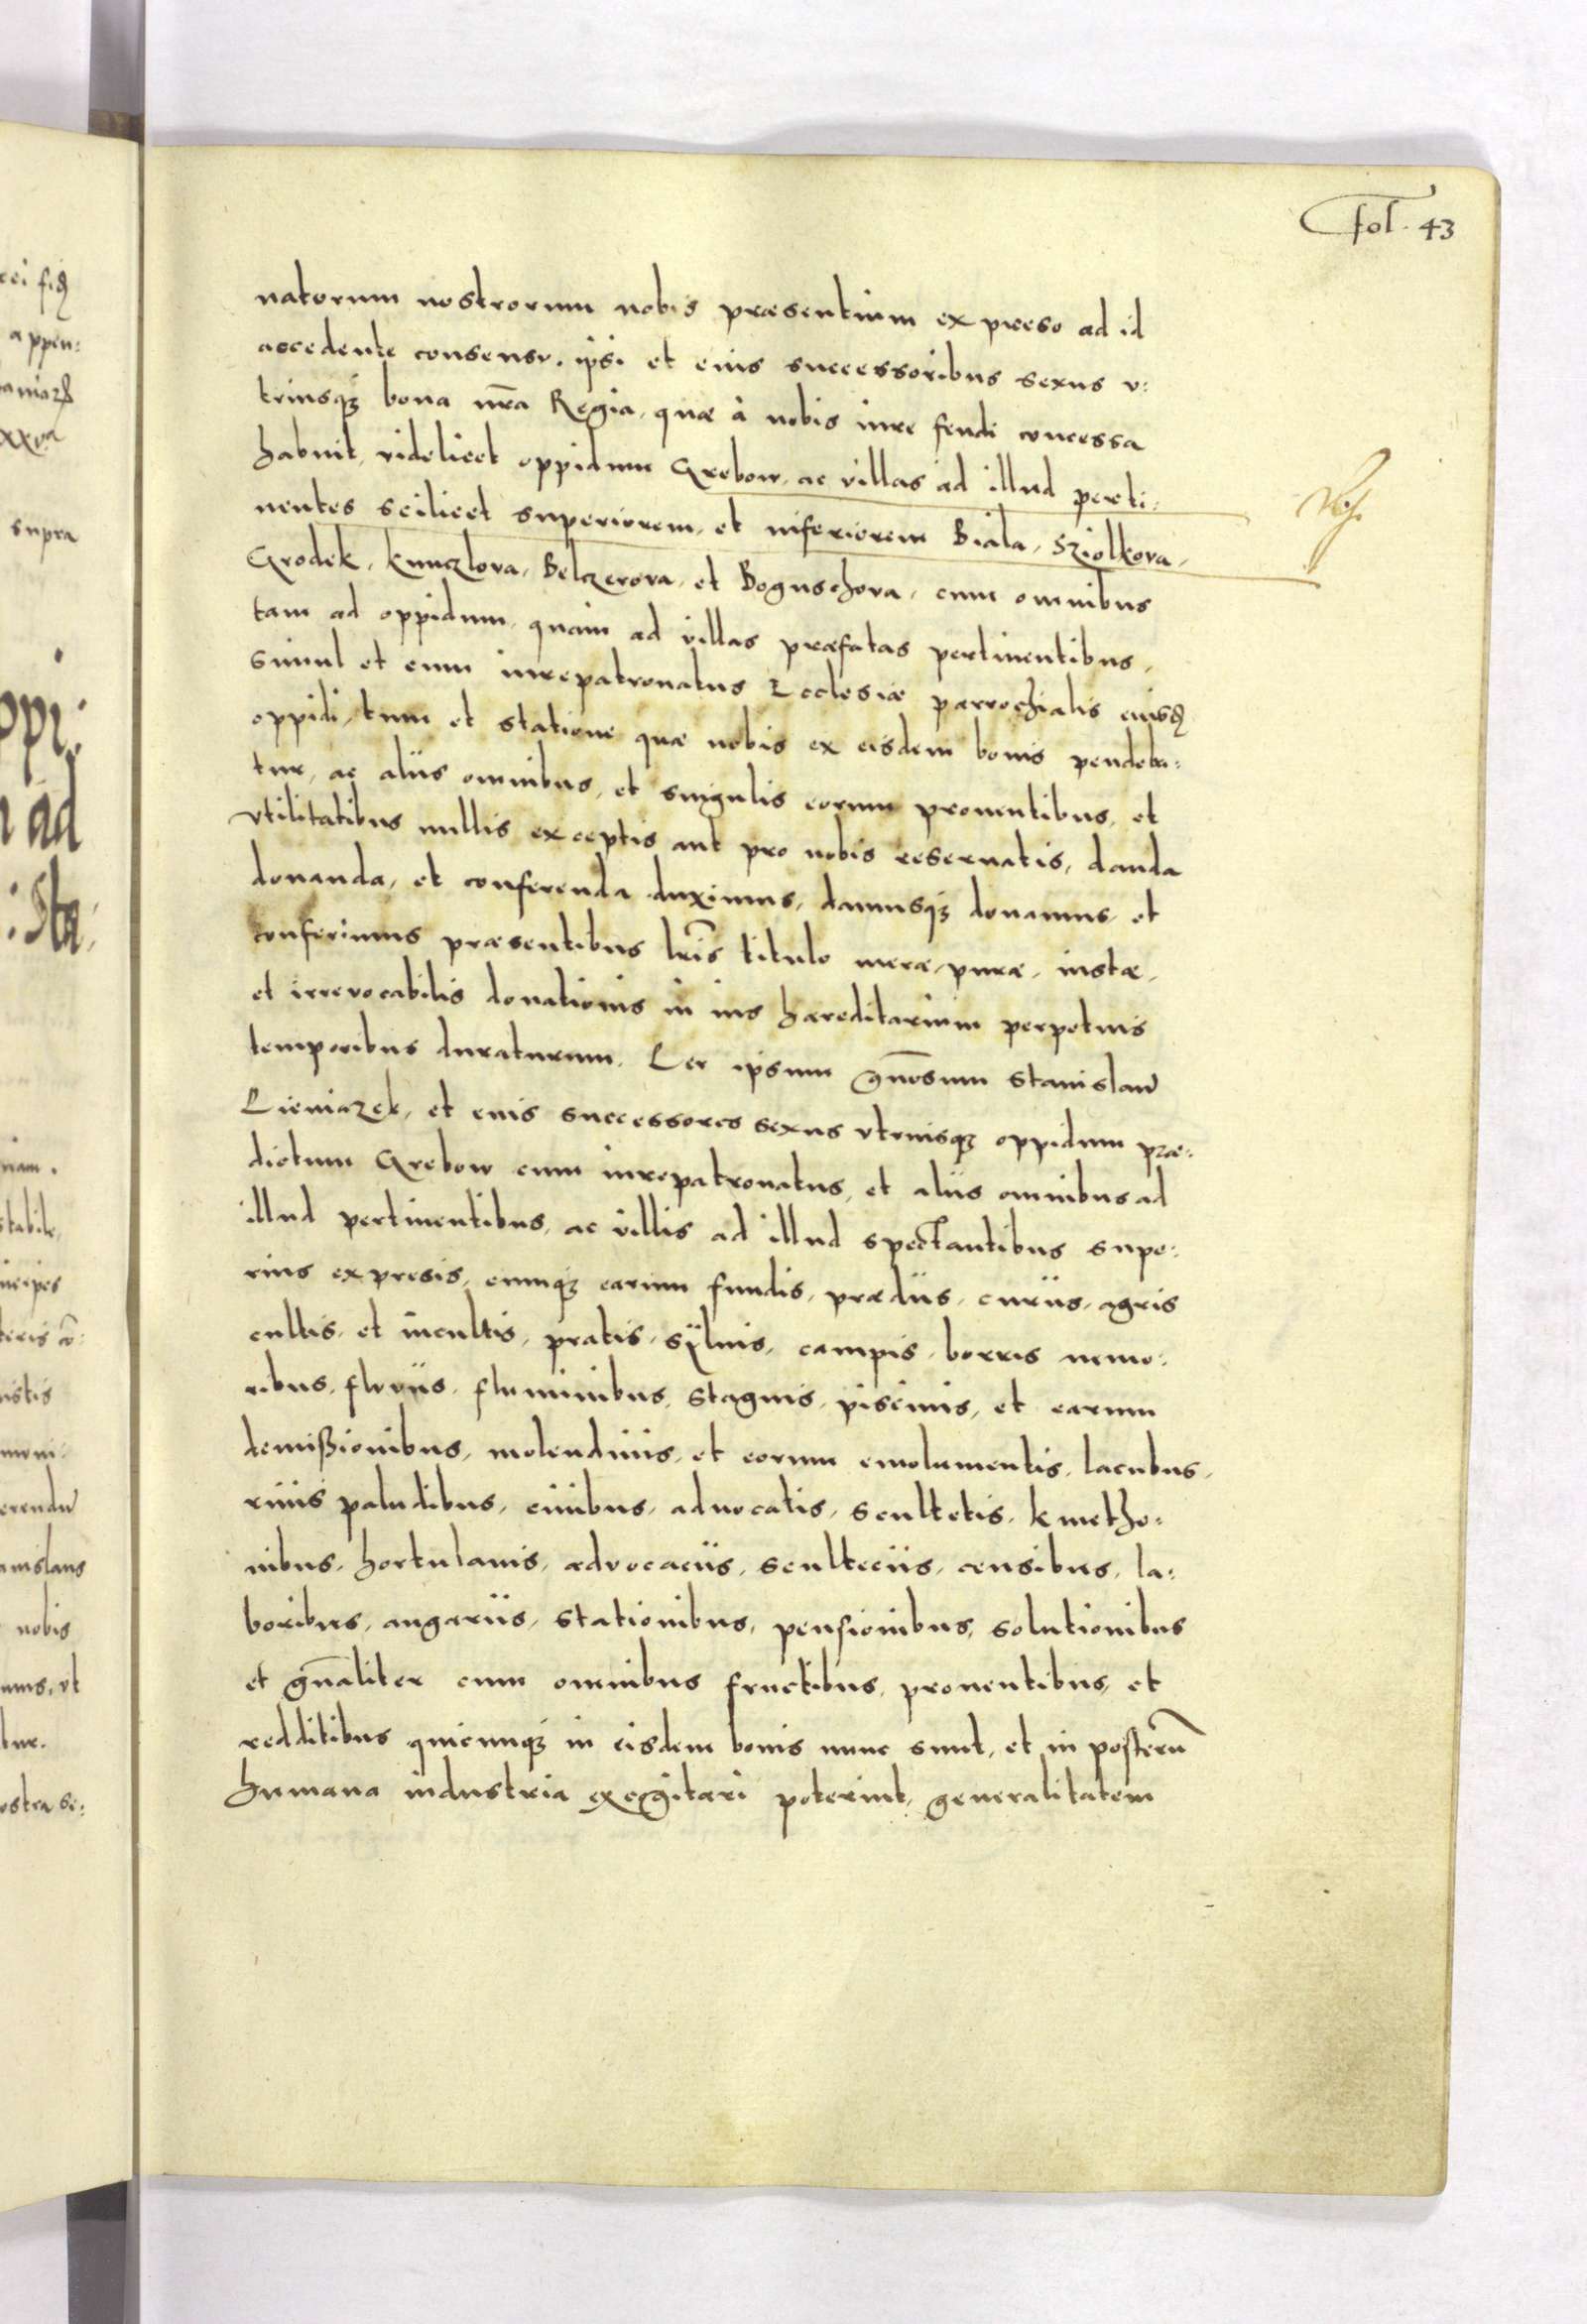 Fol. 43
natorum nostrorum nobis præsentium expreso ad id
accedente consensv. ipsi et eius successoribus sexus v:
triusqꝫ bona nr̃a Regia, quæ à nobis iure feudi concessa
habuit, videlicet oppidum Grebow, ac villas ad illud perti:
nentes scilicet superiorem, et inferiorem Biala, Sziolkova,
Grodek, kunczlova, Belczerova, et Boguschova, cum omnibus
tam ad oppidum, quam ad villas præfatas pertinentibus,
simul et cum iurepatronatus Ecclesiæ parrochialis eiusd
oppidi, tum et statione quæ nobis ex eisdem bonis pendeba:
tur, ac aliis omnibus, et singulis eorum prouentibus, et
vtilitatibus nullis exceptis aut pro nobis reseruatis, danda
donanda, et conferenda duximus, damusqꝫ donamus, et
conferimus præsentibus lr̃is titulo meræ, puræ, iustæ,
et irrevocabilis donationis in ius hæreditarium perpetuis
temporibus duraturum. Per ipsum gñosum Stanislaũ
Pieniazek, et eius successores sexus vtriusqꝫ oppidum præ:
dictum Grebow cum iurepatronatus, et aliis omnibus ad
illud pertinentibus, ac villis ad illud spectantibus supe:
rius expresis, cumqꝫ earum fundis, prædiis, curiis, agris
cultis, et incultis, pratis, sÿluis, campis, borris nemo:
ribus, flvviis, fluminibus, stagnis, piscinis, et earum
demißionibus, molendinis, et eorum emolumentis, lacubus,
riuis paludibus, ciuibus, aduocatis, scultetis, kmetho:
nibus, hortulanis, advocaciis, sculteciis, censibus, la:
boribus, angariis, stationibus, pensionibus, solutionibus
et gñaliter cum omnibus fructibus, prouentibus, et
redditibus quicunqꝫ in eisdem bonis nunc sunt, et in posterũ
humana industria excogitari poterint, generalitatem